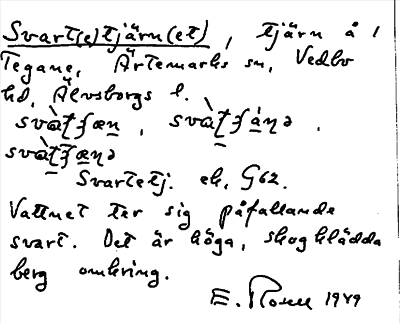 Svart(e)tjärn(et), tjärn å /
Tegane, Ärtemarks sn, Vedbo
hd, Älvsborgs l.
Svartetj. ek, G62.
Vattnet ter sig påfallande
svart. Det är höga, skogklädda
berg omkring.
E. Rosell 1949